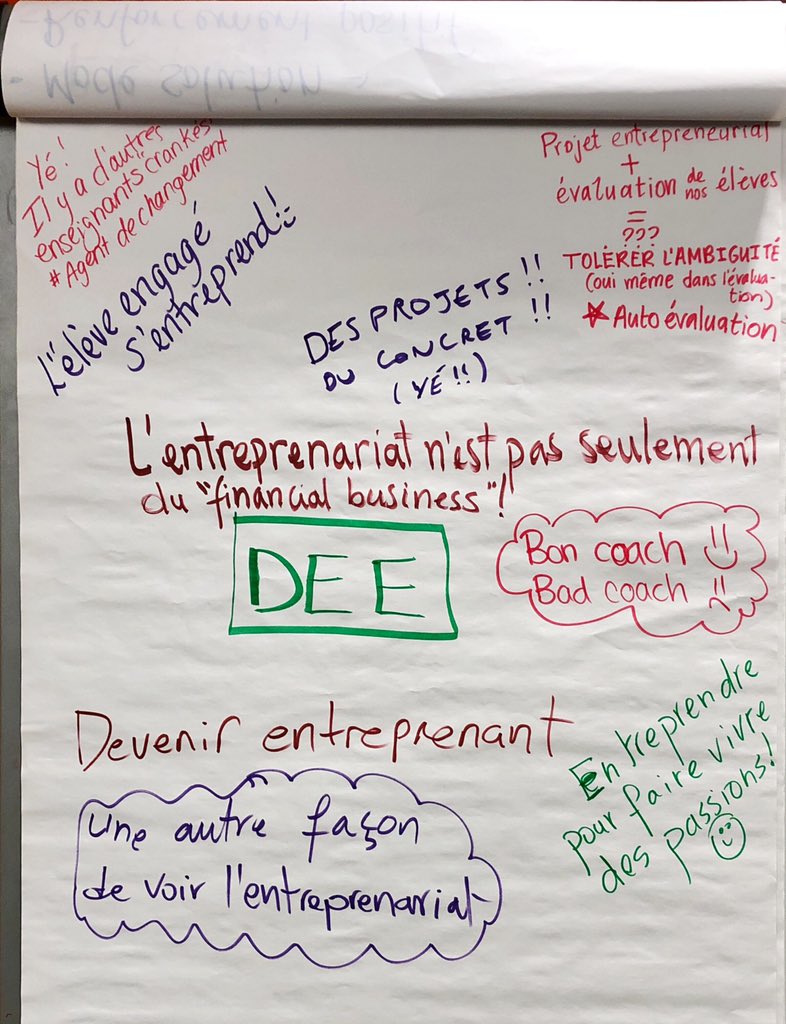 - Renforcement positif
- Mode solution -
Yé!
Il y a d'autres
enseignants crankés!
#Agent de changement
L'élève engagé
s'entreprend!
Projet entrepreneurial
+
évaluation de nos élèves
=
???
TOLÉRER L'AMBIGUITÉ
(oui même dans l'évalua-
tion)
Auto évaluation
DES PROJETS!!
DU CONCRET!!
(YÉ!!)
L'entreprenariat n'est pas seulement
du "financial business"!
DEE
Bon coach
Bad coach
Devenir entreprenant
Entreprendre
pour faire vivre
des passions!
Une autre façon
de voir l'entreprenariat